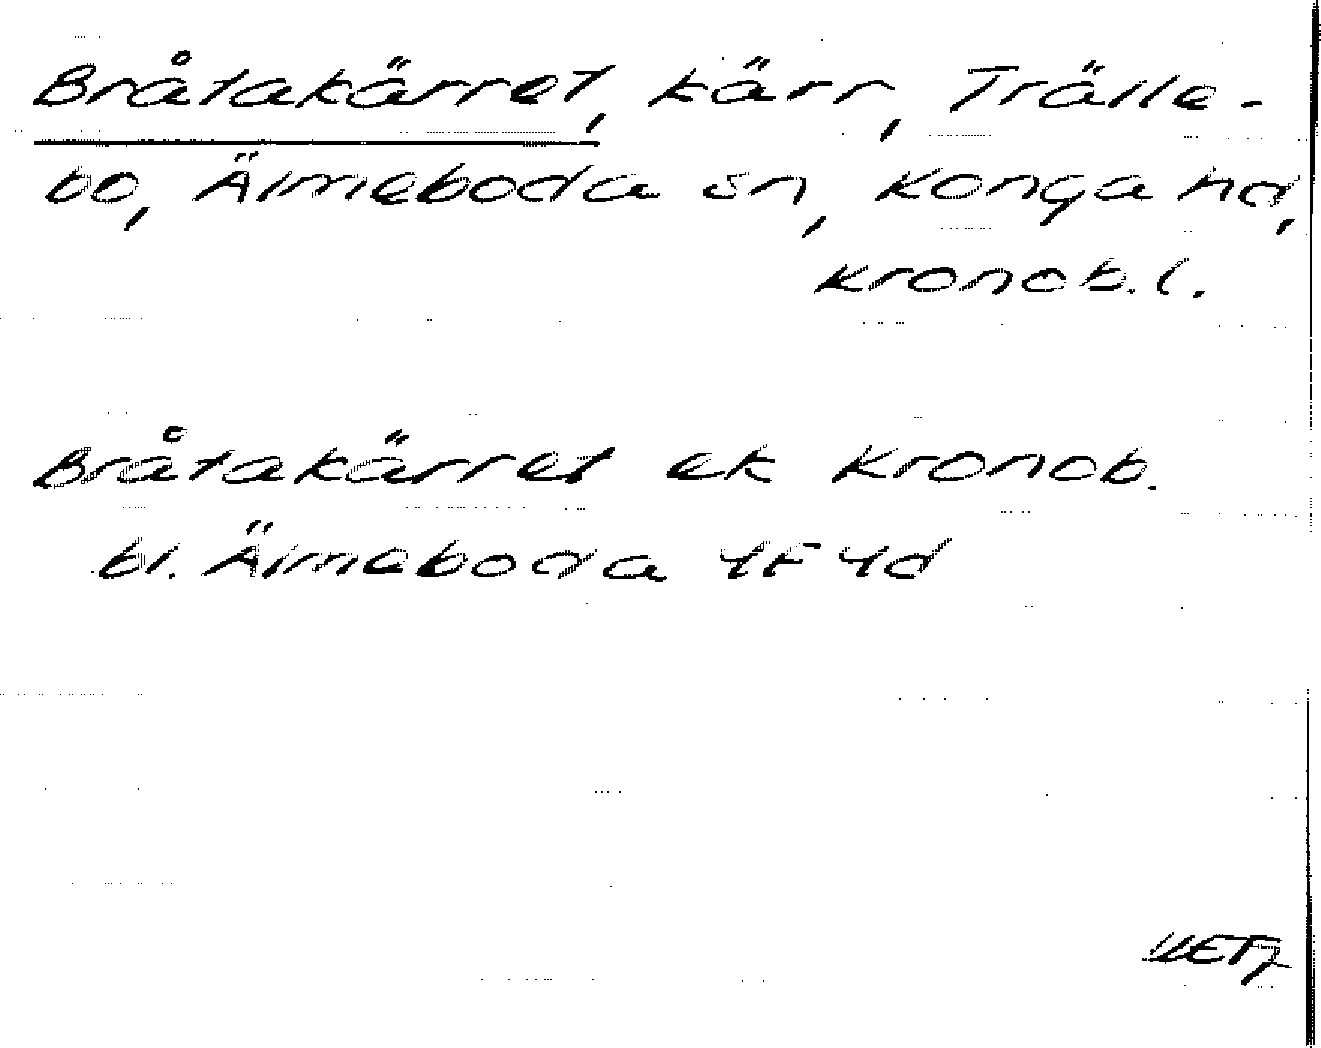 Bråtakärret, kärr, Trälle-
bo, Älmeboda sn, Konga hd,
Kronob. l.
Bråtakärret ek Kronob.
bl. Älmeboda 4F4d